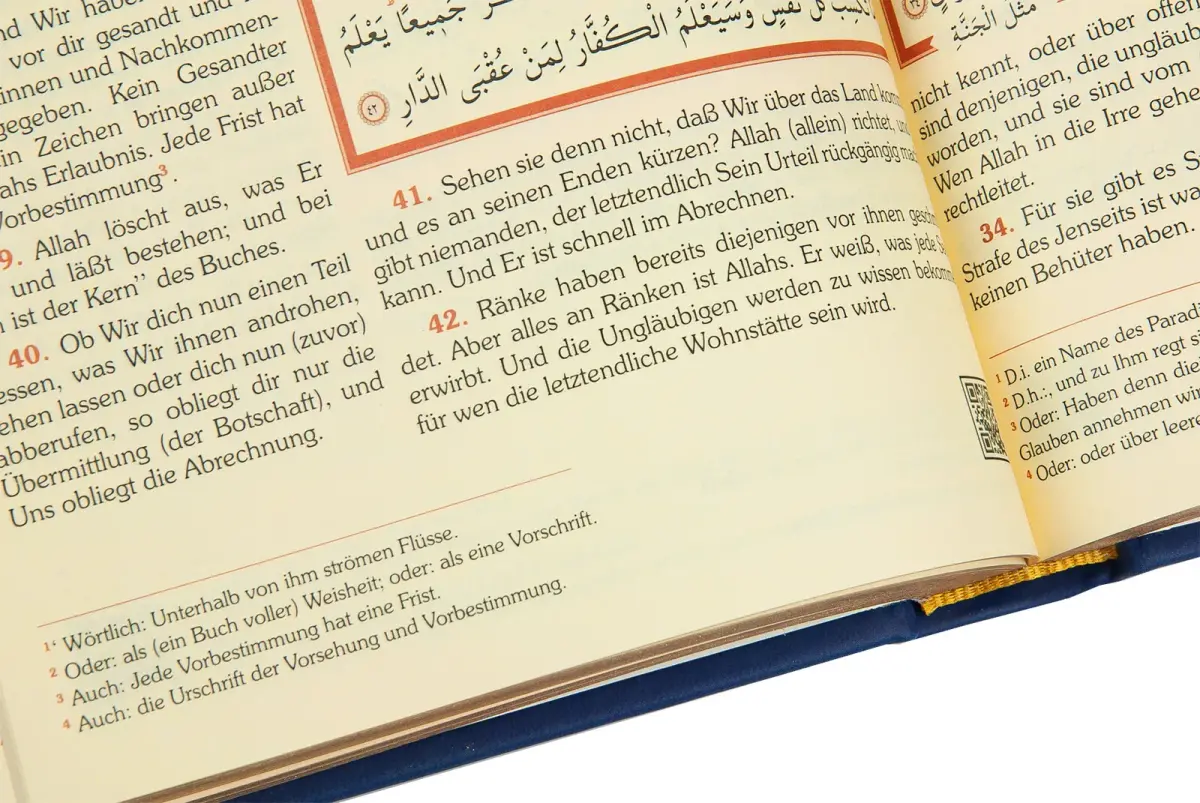 nd Wir habe
vor dir gesandt und i
innen und Nachkommen-
gegeben. Kein Gesandter
in Zeichen bringen außer
ahs Erlaubnis. Jede Frist hat
Vorbestimmung³.
9. Allah löscht aus, was Er
und läßt bestehen; und bei
ist der Kern” des Buches.
40. Ob Wir dich nun einen Teil
essen, was Wir ihnen androhen,
ehen lassen oder dich nun (zuvor)
abberufen, so obliegt dir nur die
Übermittlung (der Botschaft), und
Uns obliegt die Abrechnung.
¹‘ Wörtlich: Unterhalb von ihm strömen Flüsse.
² Oder: als (ein Buch voller) Weisheit; oder: als eine Vorschrift.
³ Auch: Jede Vorbestimmung hat eine Frist.
⁴ Auch: die Urschrift der Vorsehung und Vorbestimmung.
جَمِيعًا يَعْلَمُ
تَكْسِبُ كُلُّ نَفْسٍ وَسَيَعْلَمُ الْكُفَّارُ لِمَنْ عُقْبَى الدَّارِ ٤٢
41. Sehen sie denn nicht, daß Wir über das Land kom
und es an seinen Enden kürzen? Allah (allein) richtet, un
gibt niemanden, der letztendlich Sein Urteil rückgängig mac
kann. Und Er ist schnell im Abrechnen.
42. Ränke haben bereits diejenigen vor ihnen gesch
det. Aber alles an Ränken ist Allahs. Er weiß, was jede S
erwirbt. Und die Ungläubigen werden zu wissen bekom
für wen die letztendliche Wohnstätte sein wird.
مَثَلُ الْجَنَّةِ
nicht kennt, oder über offen
sind denjenigen, die ungläub
worden, und sie sind vom
Wen Allah in die Irre gehe
rechtleitet.
34. Für sie gibt es S
Strafe des Jenseits ist wa
keinen Behüter haben.
¹ D.i. ein Name des Paradi
² D.h.:, und zu Ihm regt si
³ Oder: Haben denn die
Glauben annehmen wir
⁴ Oder: oder über leere